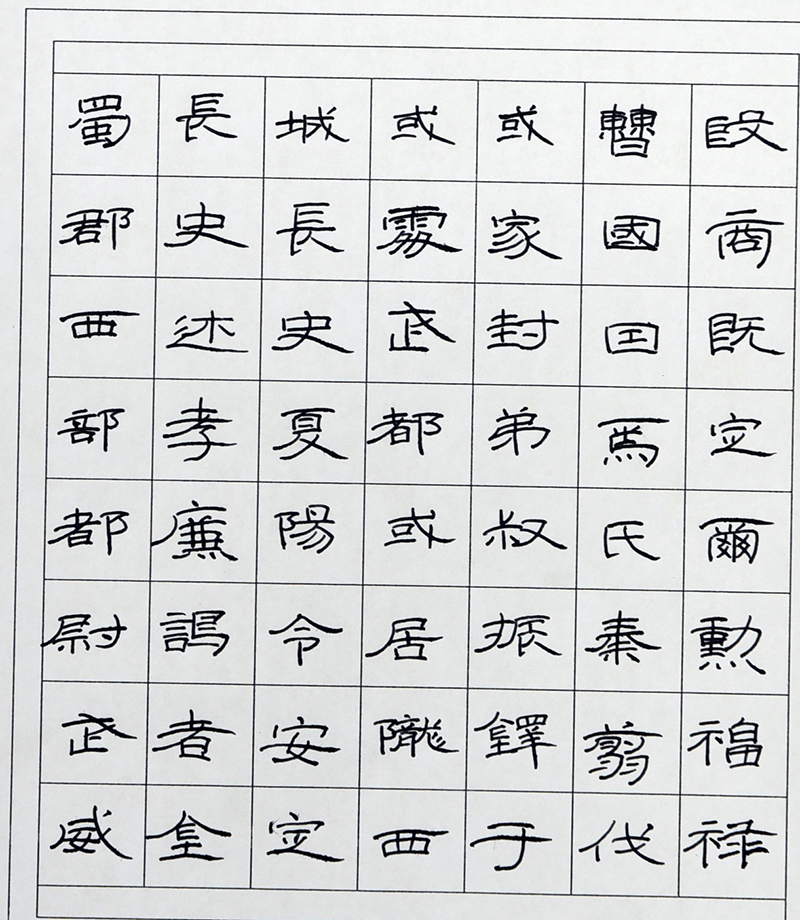 殷商既定爾勳福祿
曹國因焉氏秦翦伐
或家封弟叔振鐸于
或處武都或居隴西
城長史夏陽令安定
長史述孝廉謁者金
蜀郡西部都尉武威